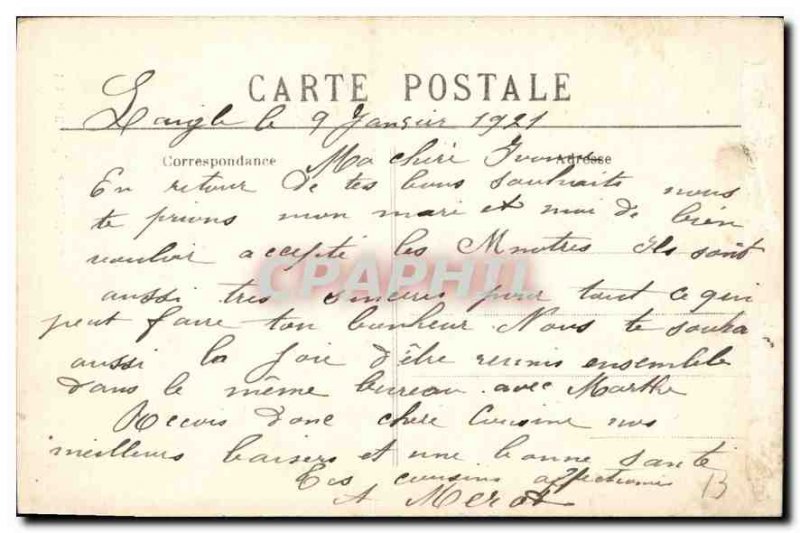 CARTE POSTALE
Laigle le 9 Janvier 1921
Correspondance Ma chère Yvonne Adresse
En retour de tes bons souhaits nous
te prions mon mari et moi de bien
vouloir accepté les Mnotres Ils sont
aussi très sincères pour tout ce qui
CPAPHIL
peut faire ton bonheur. Nous te souha
aussi la joie d'être reunis ensemble
dans le même bureau avec Marthe
Recois donc chère Cousine nos
meilleurs baisers et une bonne santé
Tes cousins affectionnés
A Merot
13